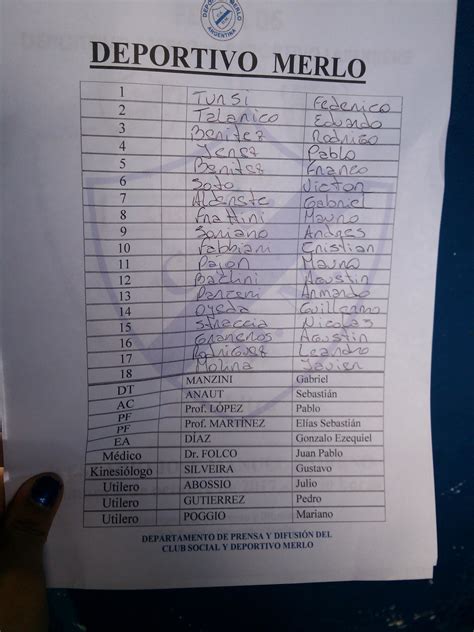 DEPORTIVO MERLO
ARGENTINA
DEPORTIVO MERLO
1 Tursi Federico
2 Talarico Eduardo
3 Benitez Rodrigo
4 Pablo
5 Benitez Franco
6 Soto Victor
7 Alderete Gabriel
8 Frattini Mauro
9 Soriano Andres
10 Fabbiani Cristian
11 Pajon Mauro
12 Bachini Agustin
13 Armando
14 Ojeda Guillermo
15 Straccia Nicolas
16 Graneros Agustin
17 Rodriguez Leandro
18 Molina Javier
DT MANZINI Gabriel
AC ANAUT Sebastián
PF Prof. LÓPEZ Pablo
PF Prof. MARTÍNEZ Elías Sebastián
EA DÍAZ Gonzalo Ezequiel
Médico Dr. FOLCO Juan Pablo
Kinesiólogo SILVEIRA Gustavo
Utilero ABOSSIO Julio
Utilero GUTIERREZ Pedro
Utilero POGGIO Mariano
DEPARTAMENTO DE PRENSA Y DIFUSIÓN DEL
CLUB SOCIAL Y DEPORTIVO MERLO